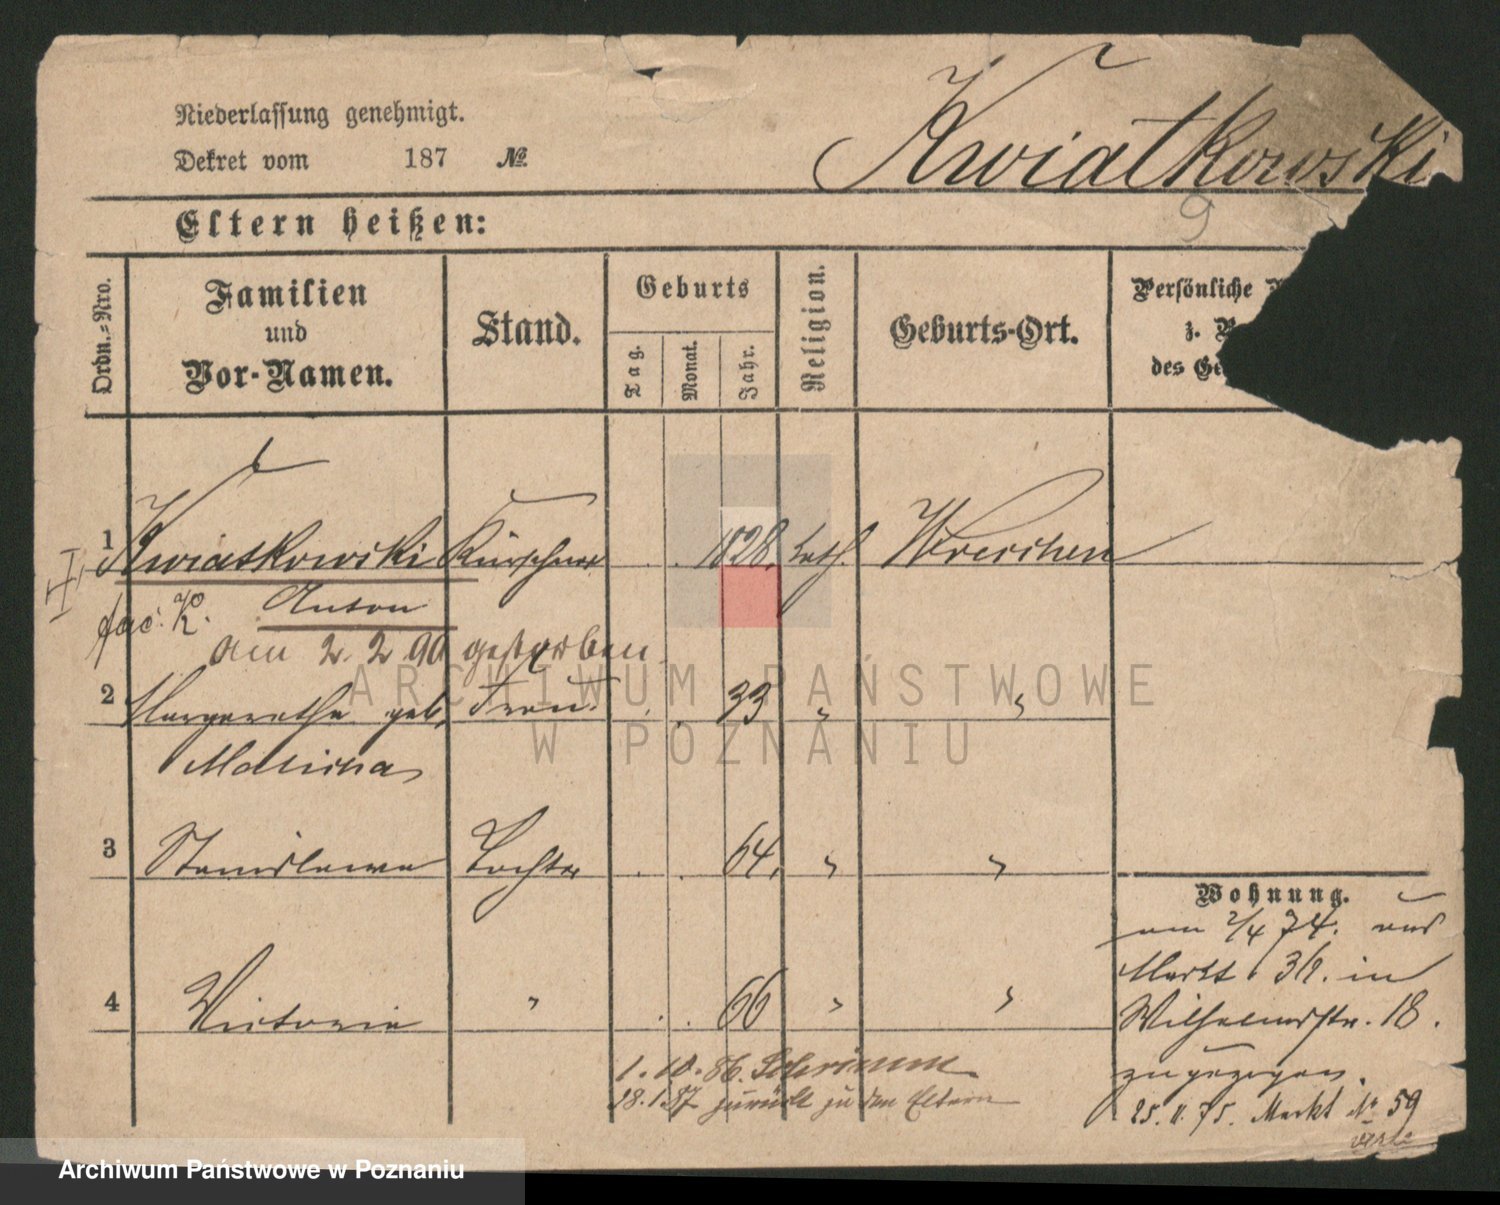 Niederlassung genehmigt.
Dekret vom 187 №
Kwiatkowski
9
Eltern heißen:
Ordn.-Nro.
Familien und Vor-Namen.
Stand.
Geburts
Tag.
Monat.
Jahr.
Religion.
Geburts-Ort.
Persönliche
z.
des
1 Kwiatkowski Kürschner 1828. kath. Wreschen
Anton
am 2. 2. 90 gestorben
2 Margaretha geb. Frau 33 " "
3 Stanislawa Tochter 64. " "
4 Victoria " 66 " "
1. 10. 86. Schrimm
28. 1. 87 zurück zu den Eltern
Wohnung.
am 2/4 74. aus
Markt in
Wilhelmstr. 18.
zugezogen.
25. 11. 75. Markt № 59
ARCHIWUM PAŃSTWOWE
W POZNANIU
Archiwum Państwowe w Poznaniu